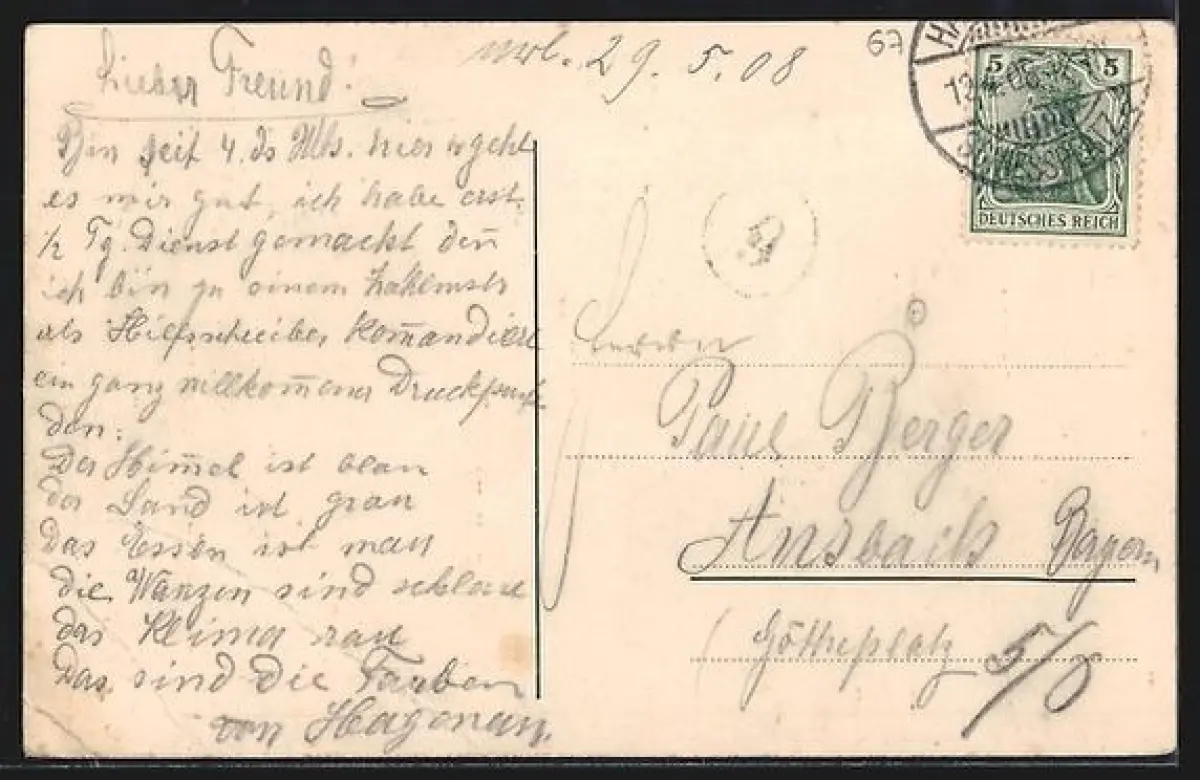 Lieber Freund!
Bin seit 4. ds Mts. hier u geht
es mir gut, ich habe erst
1/2 Tg. Dienst gemacht den̄
ich bin zu einem Zahlmstr
als Hilfsschreiber kom̄andiert
ein ganz willkom̄ener Druckpos
den.
Der Him̄el ist blau
der Sand ist grau
Das Essen ist mau
die Wanzen sind schlau
das Klima rau
Das sind die Farben
von Hagenau.
29. 5. 08
67
5 5
DEUTSCHES REICH
SCHIESSPLATZ
Herrn
Paul Berger
Ansbach Bayern
Götheplatz 5/0